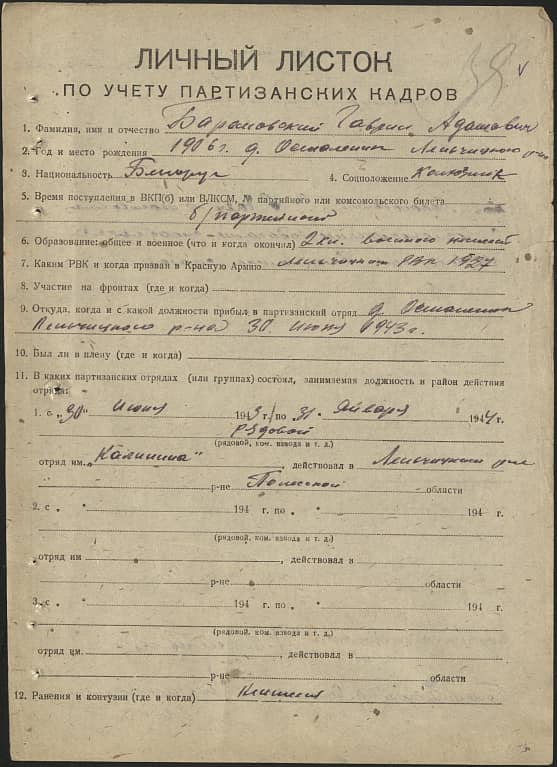 ЛИЧНЫЙ ЛИСТОК
ПО УЧЕТУ ПАРТИЗАНСКИХ КАДРОВ
1. Фамилия, имя и отчество Барановский Гаврил Адамович
2. Год и место рождения 1906 г. д. Осмоленик Лельчицкого р-на
3. Национальность Белорус 4. Соцположение Колхозник
5. Время поступления в ВКП(б) или ВЛКСМ, № партийного или комсомольского билета
б/партейный
6. Образование: общее и военное (что и когда окончил) 2 кл.
7. Каким РВК и когда призван в Красную Армию Лельчицким РВК 1927
8. Участие на фронтах (где и когда)
9. Откуда, когда и с какой должности прибыл в партизанский отряд д. Осмоленик
Лельчицкого р-на 30. Июня 1943 г.
10. Был ли в плену (где и когда)
11. В каких партизанских отрядах (или группах) состоял, занимаемая должность и район действия
отряда:
1. с „30" Июня 1943 г./по 31. Января 1944 г.
Рядовой
(рядовой, ком. взвода и т. д.)
отряд им. „Калинина", действовал в Лельчицком р-не
р-не Полесской области
2. с „ " 194 г. по „ " 194 г.
(рядовой, ком. взвода и т. д.)
отряд им , действовал в
р-не области
3. с „ " 194 г. по „ " 194 г.
(рядовой, ком. взвода и т. д.)
отряд им. , действовал в
р-не области
12. Ранения и контузии (где и когда)